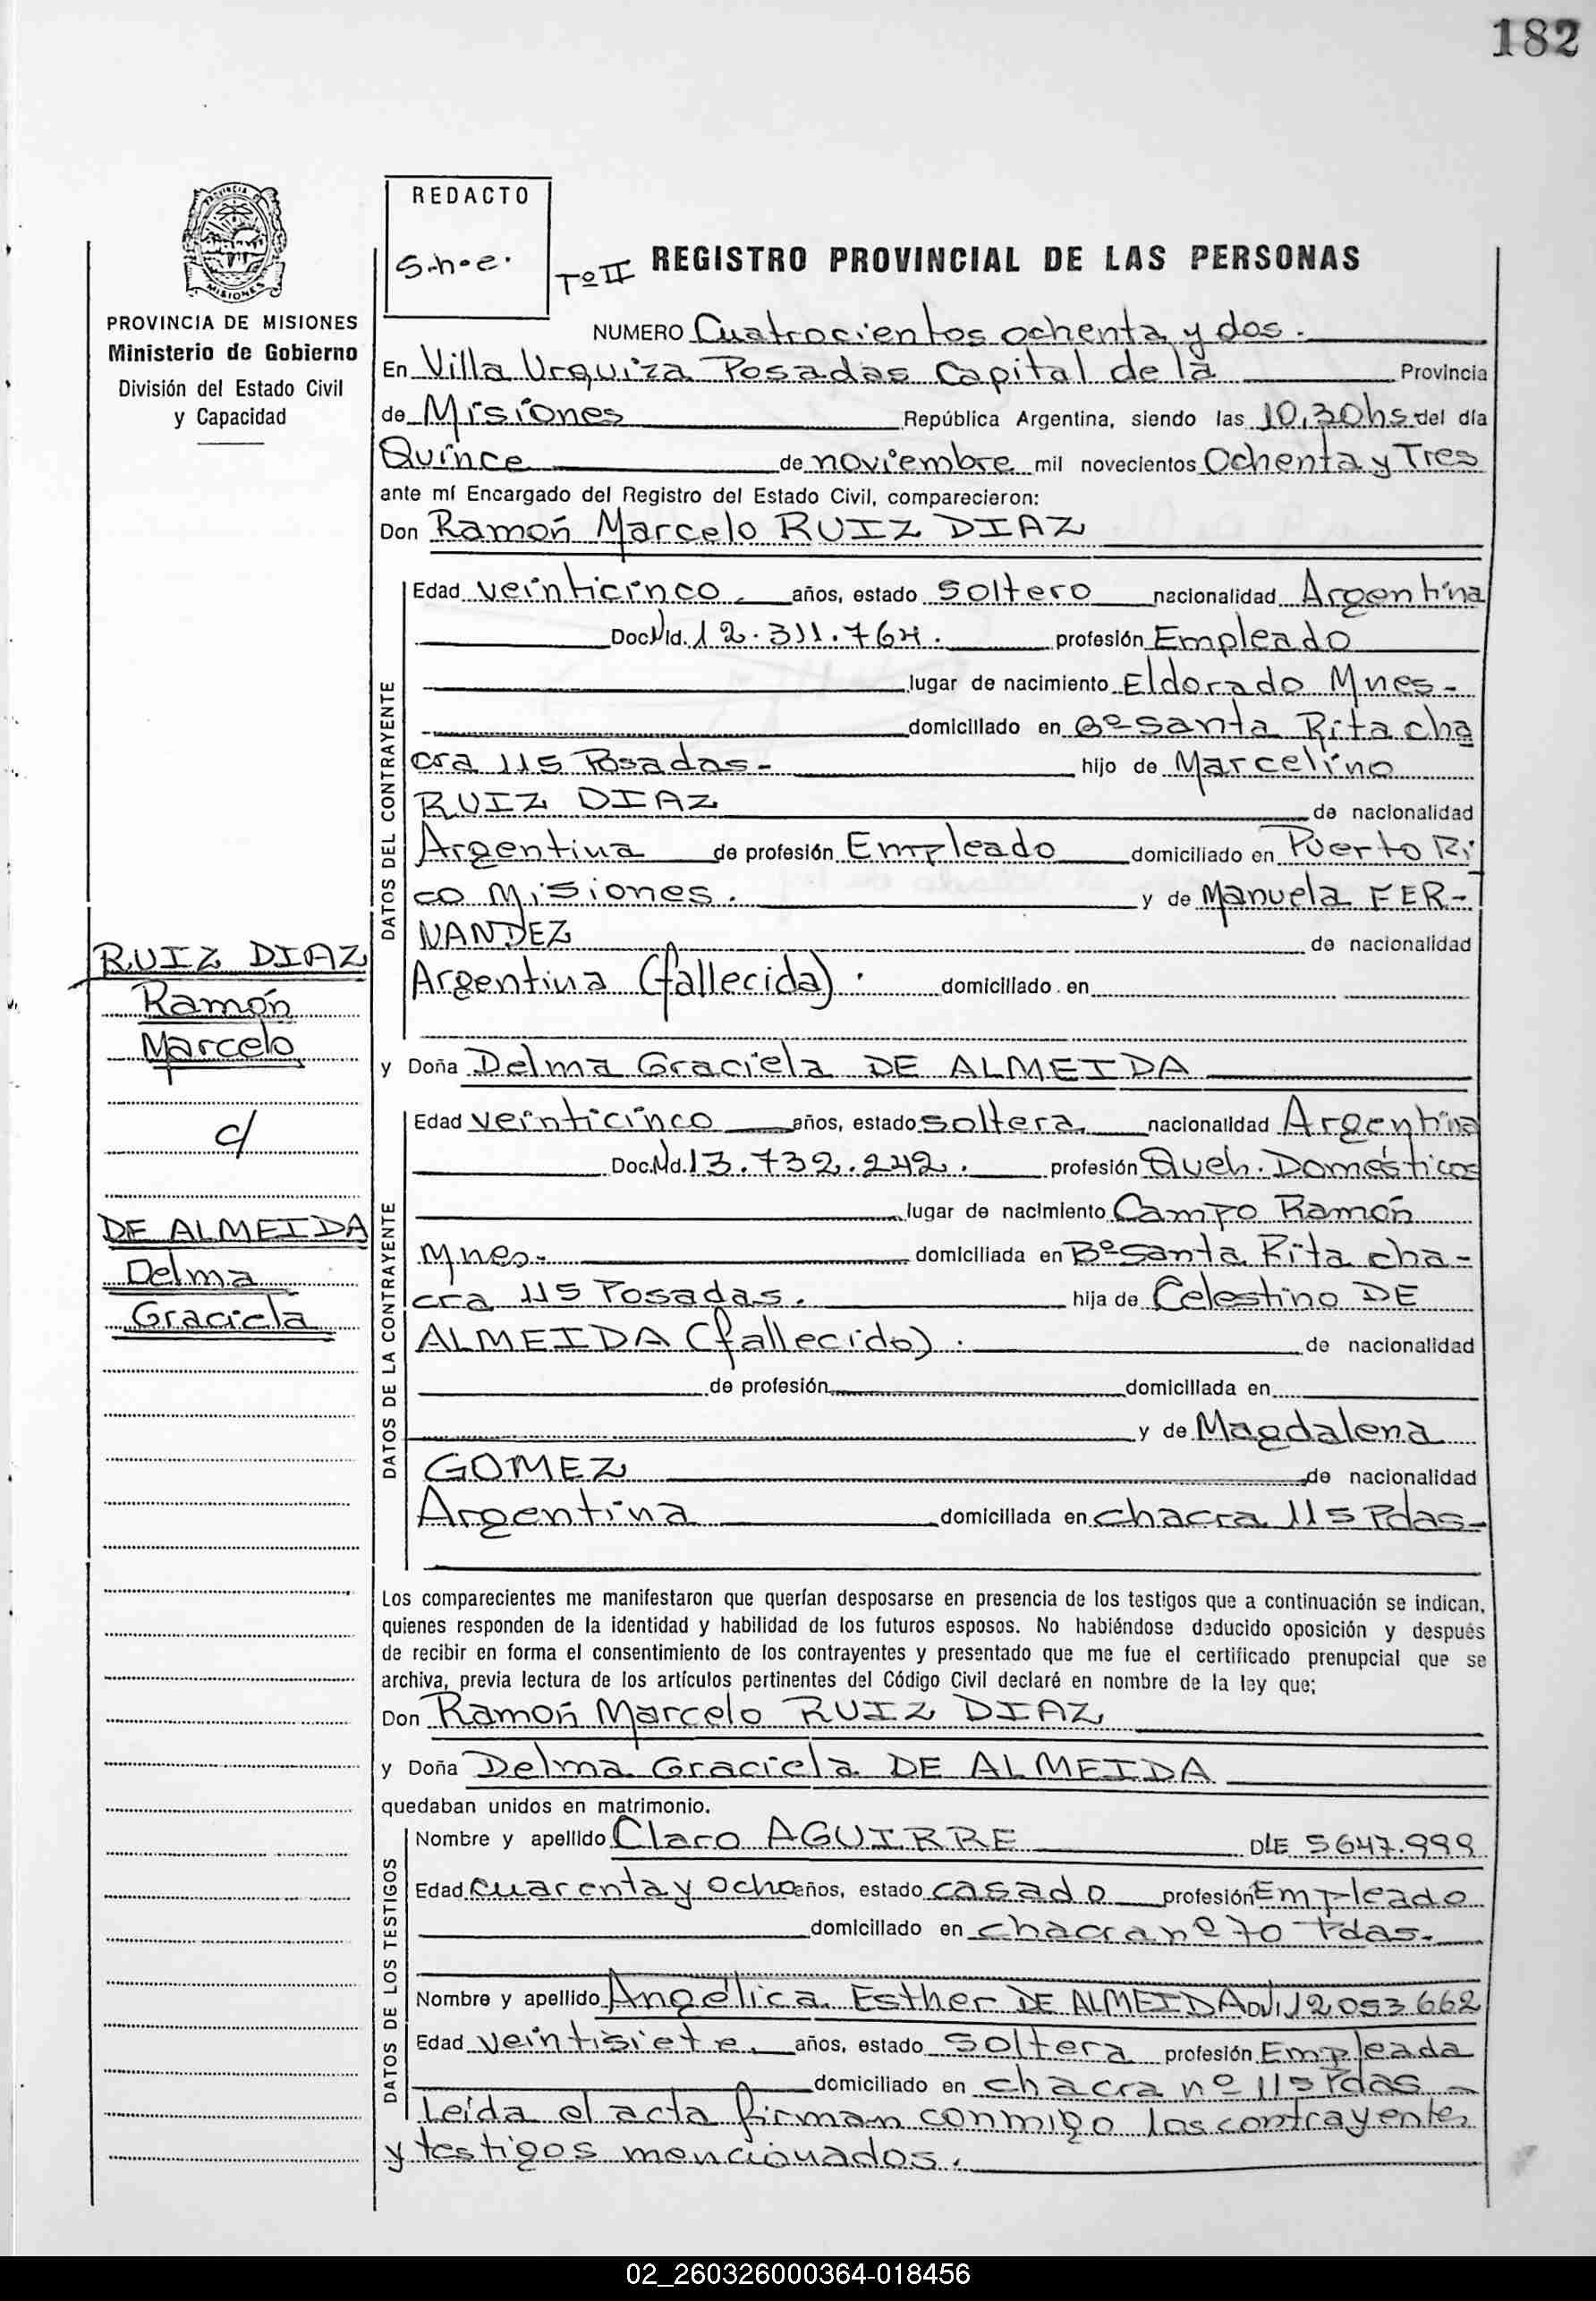 182
REDACTO
S.h.e.
Tº II
REGISTRO PROVINCIAL DE LAS PERSONAS
PROVINCIA DE MISIONES
Ministerio de Gobierno
División del Estado Civil
y Capacidad
NUMERO Cuatrocientos ochenta y dos.
En Villa Urquiza Posadas Capital de la Provincia
de Misiones República Argentina, siendo las 10,30hs del día
Quince de noviembre mil novecientos Ochenta y Tres
ante mí Encargado del Registro del Estado Civil, comparecieron:
Don Ramón Marcelo RUIZ DIAZ
DATOS DEL CONTRAYENTE
Edad veinticinco. años, estado soltero nacionalidad Argentina
Doc.NId. 12.311.764. profesión Empleado
lugar de nacimiento Eldorado Mnes-
domiciliado en Bº Santa Rita cha
cra 115 Posadas- hijo de Marcelino
RUIZ DIAZ de nacionalidad
Argentina de profesión Empleado domiciliado en Puerto Ri
co Misiones. y de Manuela FER-
NANDEZ de nacionalidad
Argentina (fallecida). domiciliado en
RUIZ DIAZ
Ramón
Marcelo
c/
DE ALMEIDA
Delma
Graciela
y Doña Delma Graciela DE ALMEIDA
DATOS DE LA CONTRAYENTE
Edad veinticinco años, estado soltera nacionalidad Argentina
Doc.NId. 13.732.242. profesión Queh. Domésticos
lugar de nacimiento Campo Ramón
Mnes- domiciliada en Bº Santa Rita cha-
cra 115 Posadas. hija de Celestino DE
ALMEIDA (fallecido). de nacionalidad
de profesión domiciliada en
y de Magdalena
GOMEZ de nacionalidad
Argentina domiciliada en chacra 115 Pdas-
Los comparecientes me manifestaron que querían desposarse en presencia de los testigos que a continuación se indican,
quienes responden de la identidad y habilidad de los futuros esposos. No habiéndose deducido oposición y después
de recibir en forma el consentimiento de los contrayentes y presentado que me fue el certificado prenupcial que se
archiva, previa lectura de los artículos pertinentes del Código Civil declaré en nombre de la ley que;
Don Ramón Marcelo RUIZ DIAZ
y Doña Delma Graciela DE ALMEIDA
quedaban unidos en matrimonio.
DATOS DE LOS TESTIGOS
Nombre y apellido Claro AGUIRRE DLE 5647.999
Edad cuarenta y ocho años, estado casado profesión Empleado
domiciliado en chacra nº 70 Pdas.
Nombre y apellido Angélica Esther DE ALMEIDA DNI 12 053 662
Edad veintisiete. años, estado soltera profesión Empleada
domiciliado en chacra nº 115 Pdas -
Leída el acta firman conmigo los contrayentes
y testigos mencionados.
02_260326000364-018456